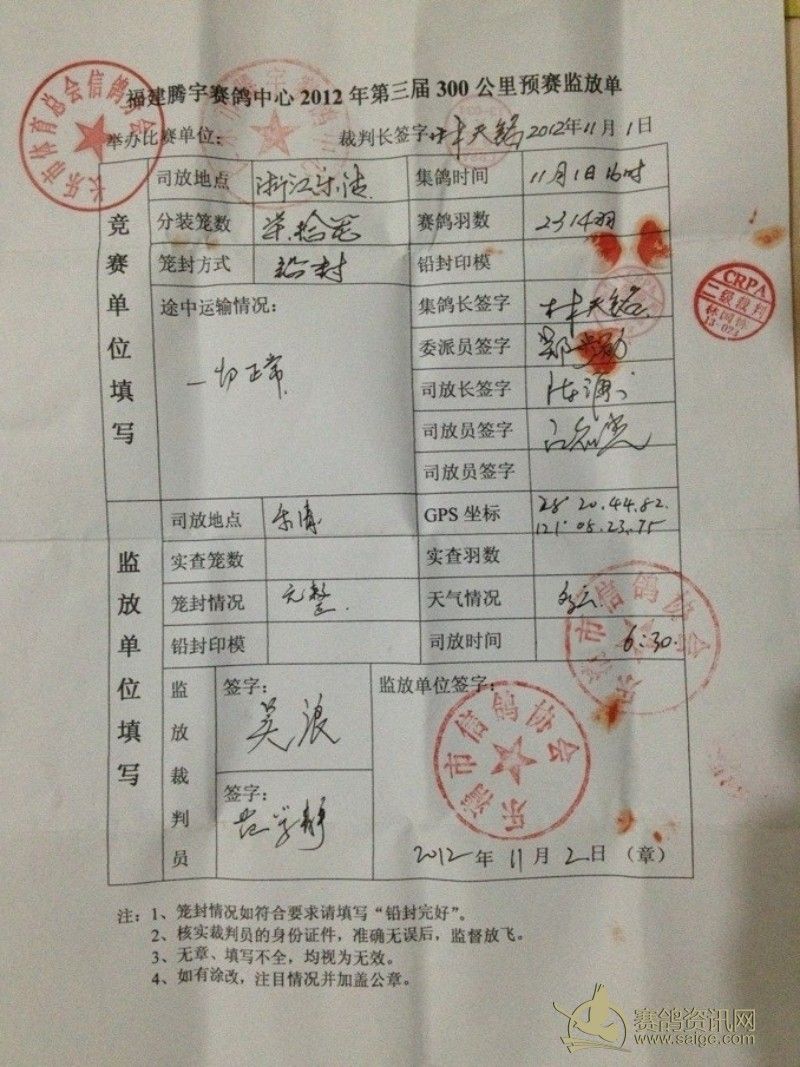 福建腾宇赛鸽中心 2012 年第三届 300 公里预赛监放单
举办比赛单位： 裁判长签字：林天铭 2012年11月1日
长乐市体育总会信鸽协会
竞赛单位填写
司放地点 浙江乐清 集鸽时间 11月1日16时
分装笼数 赛鸽羽数 2314羽
笼封方式 铅封 铅封印模
途中运输情况： 集鸽长签字 林天铭
一切正常
委派员签字
司放长签字
司放员签字
司放员签字
CRPA
二级裁判
监放单位填写
司放地点 乐清 GPS 坐标 28° 20.44.82.
121° 08.23.75
实查笼数 实查羽数
笼封情况 完整. 天气情况 多云.
铅封印模 司放时间 6:30.
乐清市信鸽协会
监放裁判员
签字： 监放单位签字：
吴浪
乐清市信鸽协会
签字：
2012 年 11 月 2 日 （章）
注：1、笼封情况如符合要求请填写“铅封完好”。
2、核实裁判员的身份证件，准确无误后，监督放飞。
3、无章、填写不全，均视为无效。
4、如有涂改，注目情况并加盖公章。
赛鸽资讯网
www.saige.com